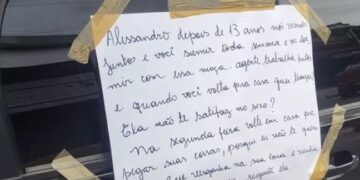 Alissandro depois de 13 anos nos
juntos e você sumir toda semana e ir dor
mir com essa moça. agente trabalha juntos
e quando você volta pra casa quer transar,
Ela não te satisfaz no sexo?
Na segunda feira volte em casa pra
pegar suas coisas, porque eu não te quero
vergonha na sua cara e minha
respeite ela